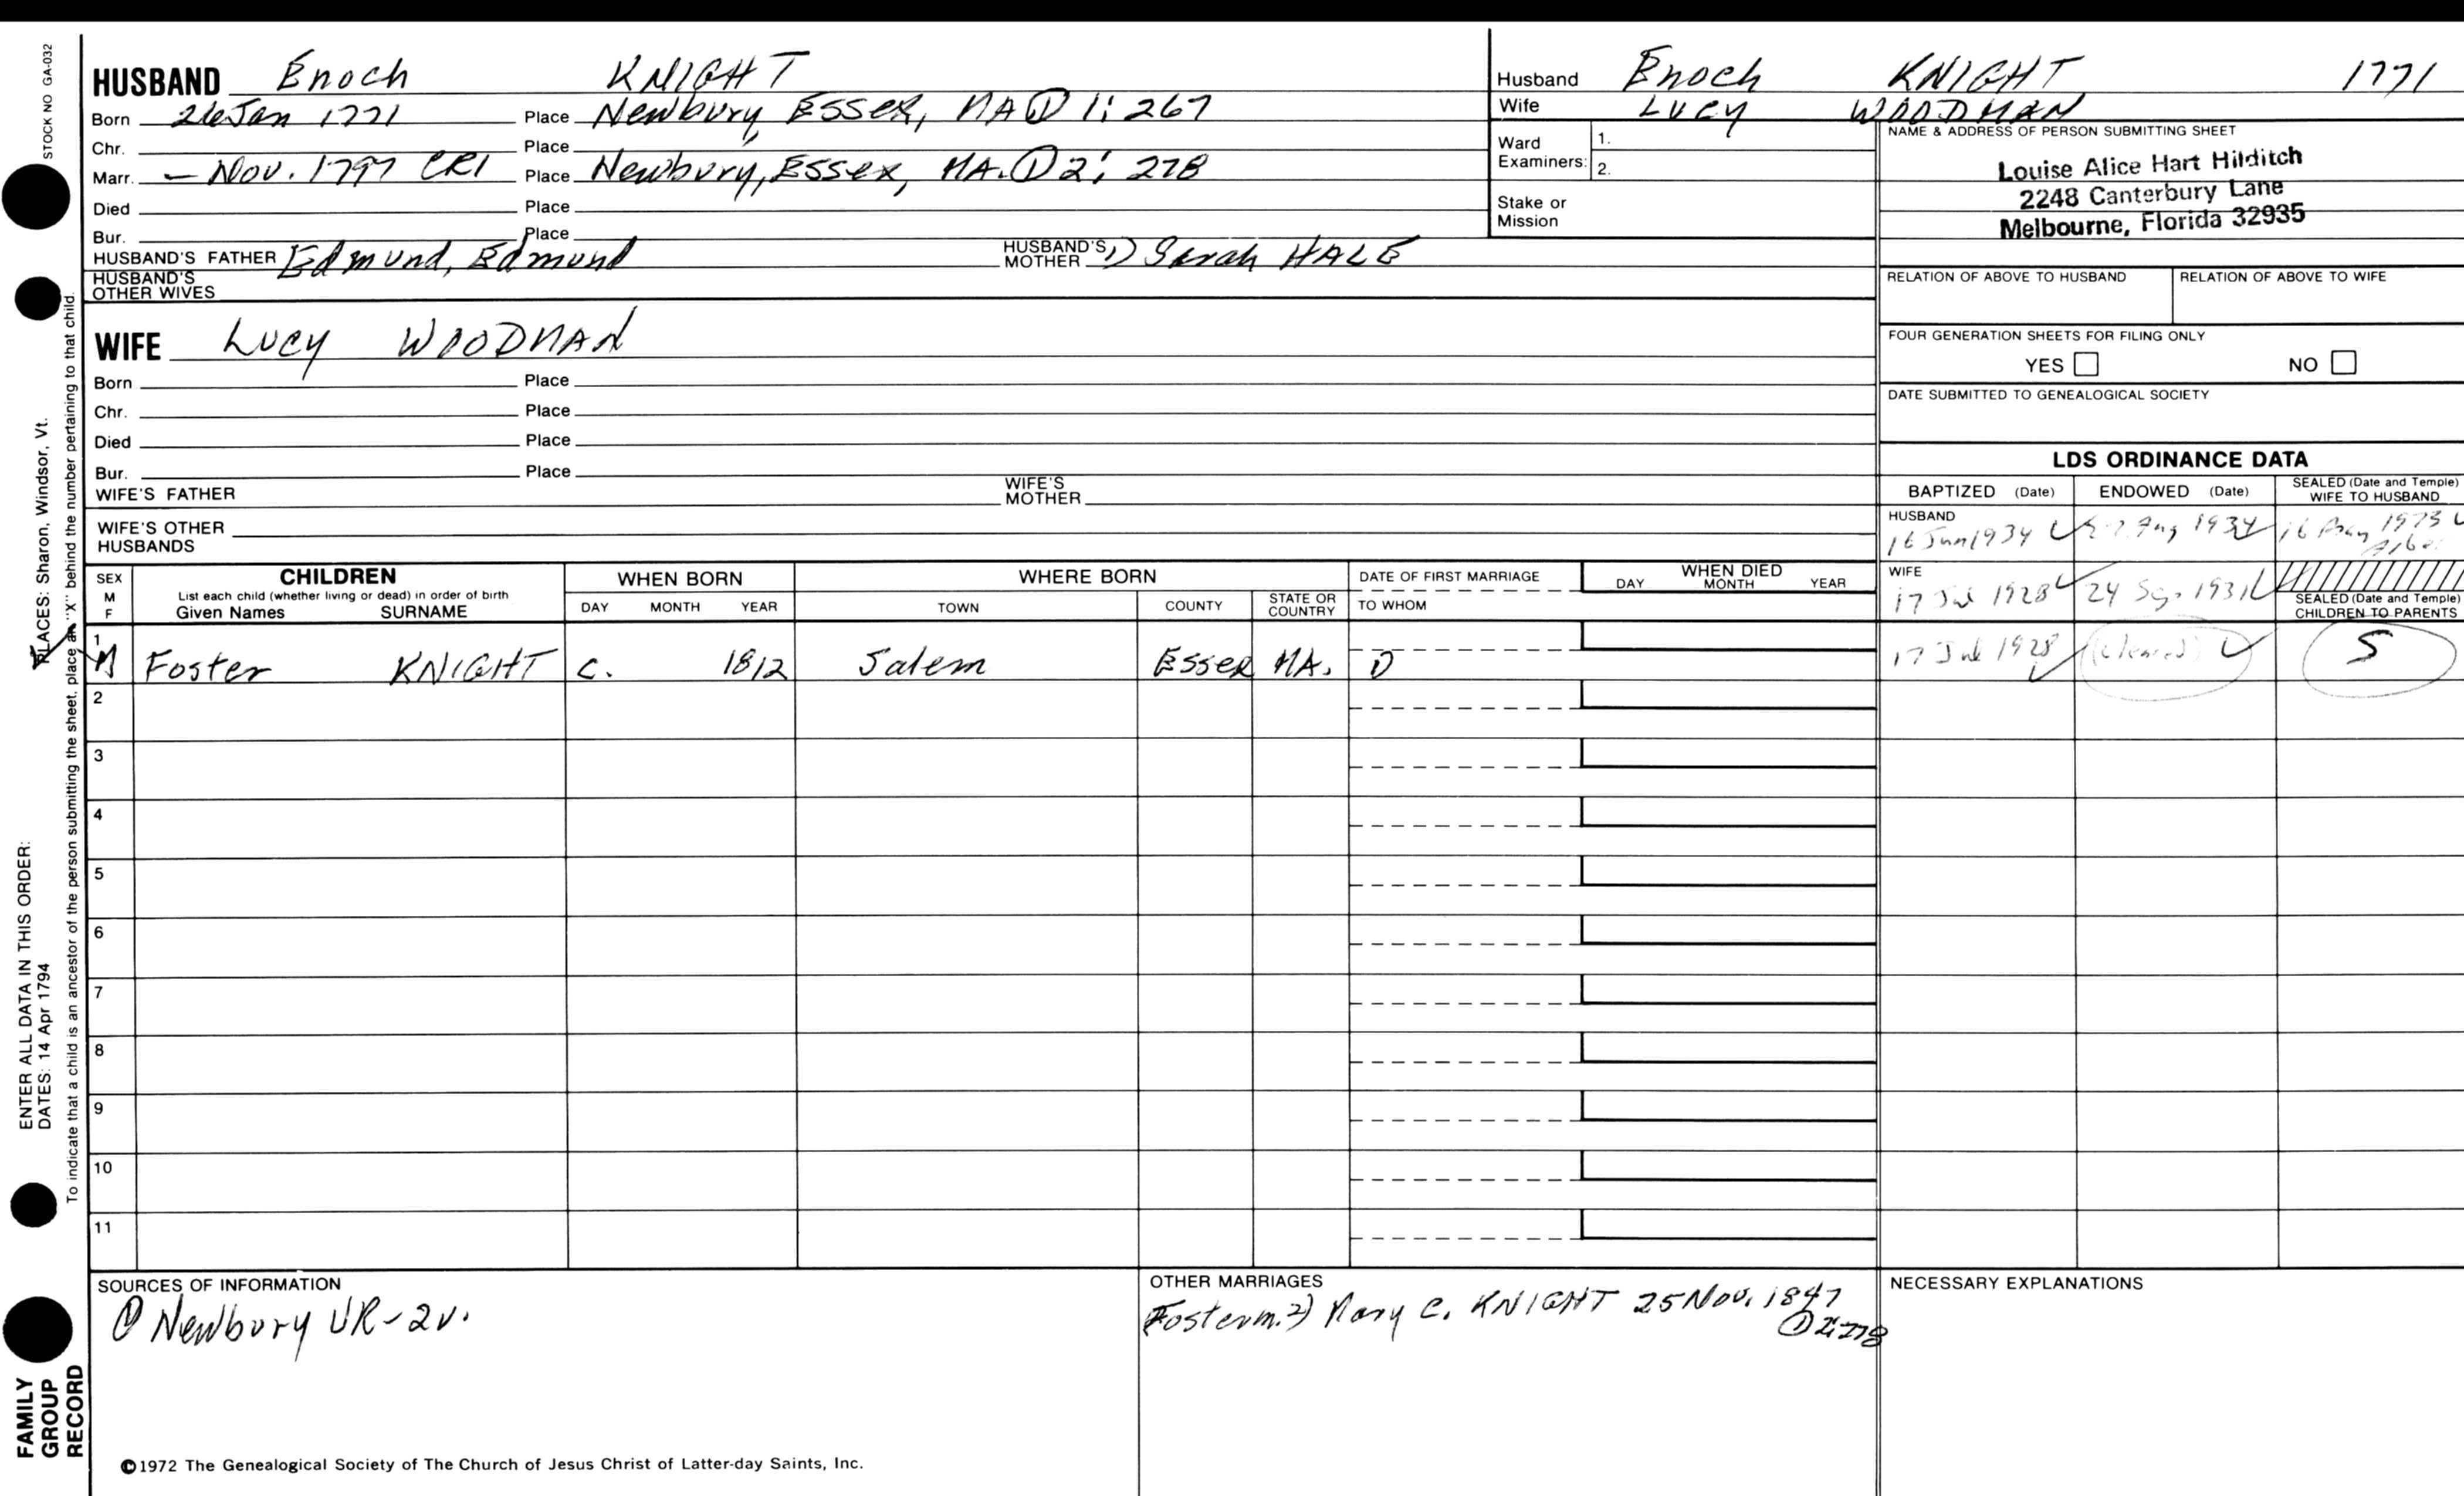 STOCK NO GA-032
HUSBAND Enoch KNIGHT
Born 26 Jan 1771 Place Newbury, Essex, MA ① 1: 267
Chr. Place
Marr. — Nov. 1797 CR1 Place Newbury, Essex, MA. ① 2: 278
Died Place
Bur. Place
HUSBAND'S FATHER Edmund, Edmund HUSBAND'S MOTHER 1) Sarah HALE
HUSBAND'S
OTHER WIVES
WIFE Lucy WOODMAN
Born Place
Chr. Place
Died Place
Bur. Place
WIFE'S FATHER WIFE'S MOTHER
WIFE'S OTHER
HUSBANDS
Husband Enoch KNIGHT 1771
Wife Lucy WOODMAN
Ward
Examiners: 1.
2.
Stake or
Mission
NAME & ADDRESS OF PERSON SUBMITTING SHEET
Louise Alice Hart Hilditch
2248 Canterbury Lane
Melbourne, Florida 32935
RELATION OF ABOVE TO HUSBAND RELATION OF ABOVE TO WIFE
FOUR GENERATION SHEETS FOR FILING ONLY
YES NO
DATE SUBMITTED TO GENEALOGICAL SOCIETY
LDS ORDINANCE DATA
BAPTIZED (Date) ENDOWED (Date) SEALED (Date and Temple) WIFE TO HUSBAND
HUSBAND
16 Jun 1934 Aug 1934 16 1973
WIFE
17 Jul 1928 24 Sep 1931
SEALED (Date and Temple)
CHILDREN TO PARENTS
SEX
M
F
CHILDREN
List each child (whether living or dead) in order of birth
Given Names SURNAME
WHEN BORN
DAY MONTH YEAR
WHERE BORN
TOWN COUNTY STATE OR COUNTRY
DATE OF FIRST MARRIAGE
TO WHOM
WHEN DIED
DAY MONTH YEAR
1
M Foster KNIGHT c. 1812 Salem Essex MA. 1) 17 Jul 1928 (cleared) S
2
3
4
5
6
7
8
9
10
11
SOURCES OF INFORMATION
① Newbury VR-2v.
OTHER MARRIAGES
Foster m. 2) Mary C. KNIGHT 25 Nov. 1847
① 2:278
NECESSARY EXPLANATIONS
©1972 The Genealogical Society of The Church of Jesus Christ of Latter-day Saints, Inc.
ENTER ALL DATA IN THIS ORDER:
DATES: 14 Apr 1794 PLACES: Sharon, Windsor, Vt.
To indicate that a child is an ancestor of the person submitting the sheet, place an "X" behind the number pertaining to that child.
FAMILY
GROUP
RECORD